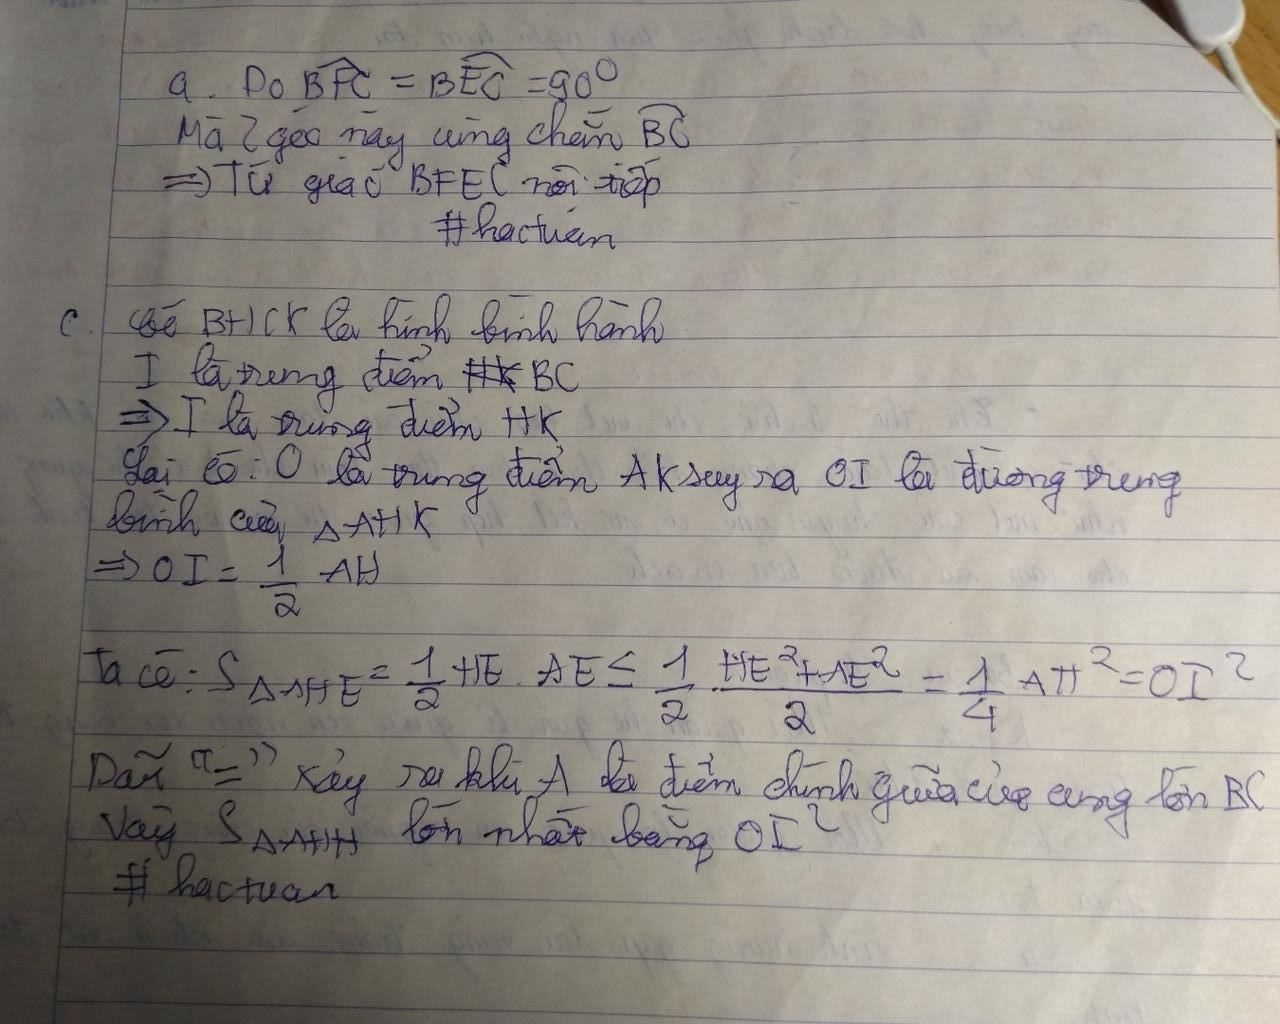 a. Do BFC = BEC = 90⁰
Mà 2 góc này cùng chắn BC
=> Tứ giác BFEC nội tiếp
#hactuan
c. Có BHCK là hình bình hành
I là trung điểm BC
=> I là trung điểm HK
Lại có: O là trung điểm AK suy ra OI là đường trung
bình của △AHK
=> OI = 1/2 AH
Ta có: S△AHE = 1/2 HE. AE ≤ 1/2 . (HE² + AE²)/2 = 1/4 AH² = OI²
Dấu "=" xảy ra khi A là điểm chính giữa của cung lớn BC
Vậy S△AHH lớn nhất bằng OI²
# hactuan